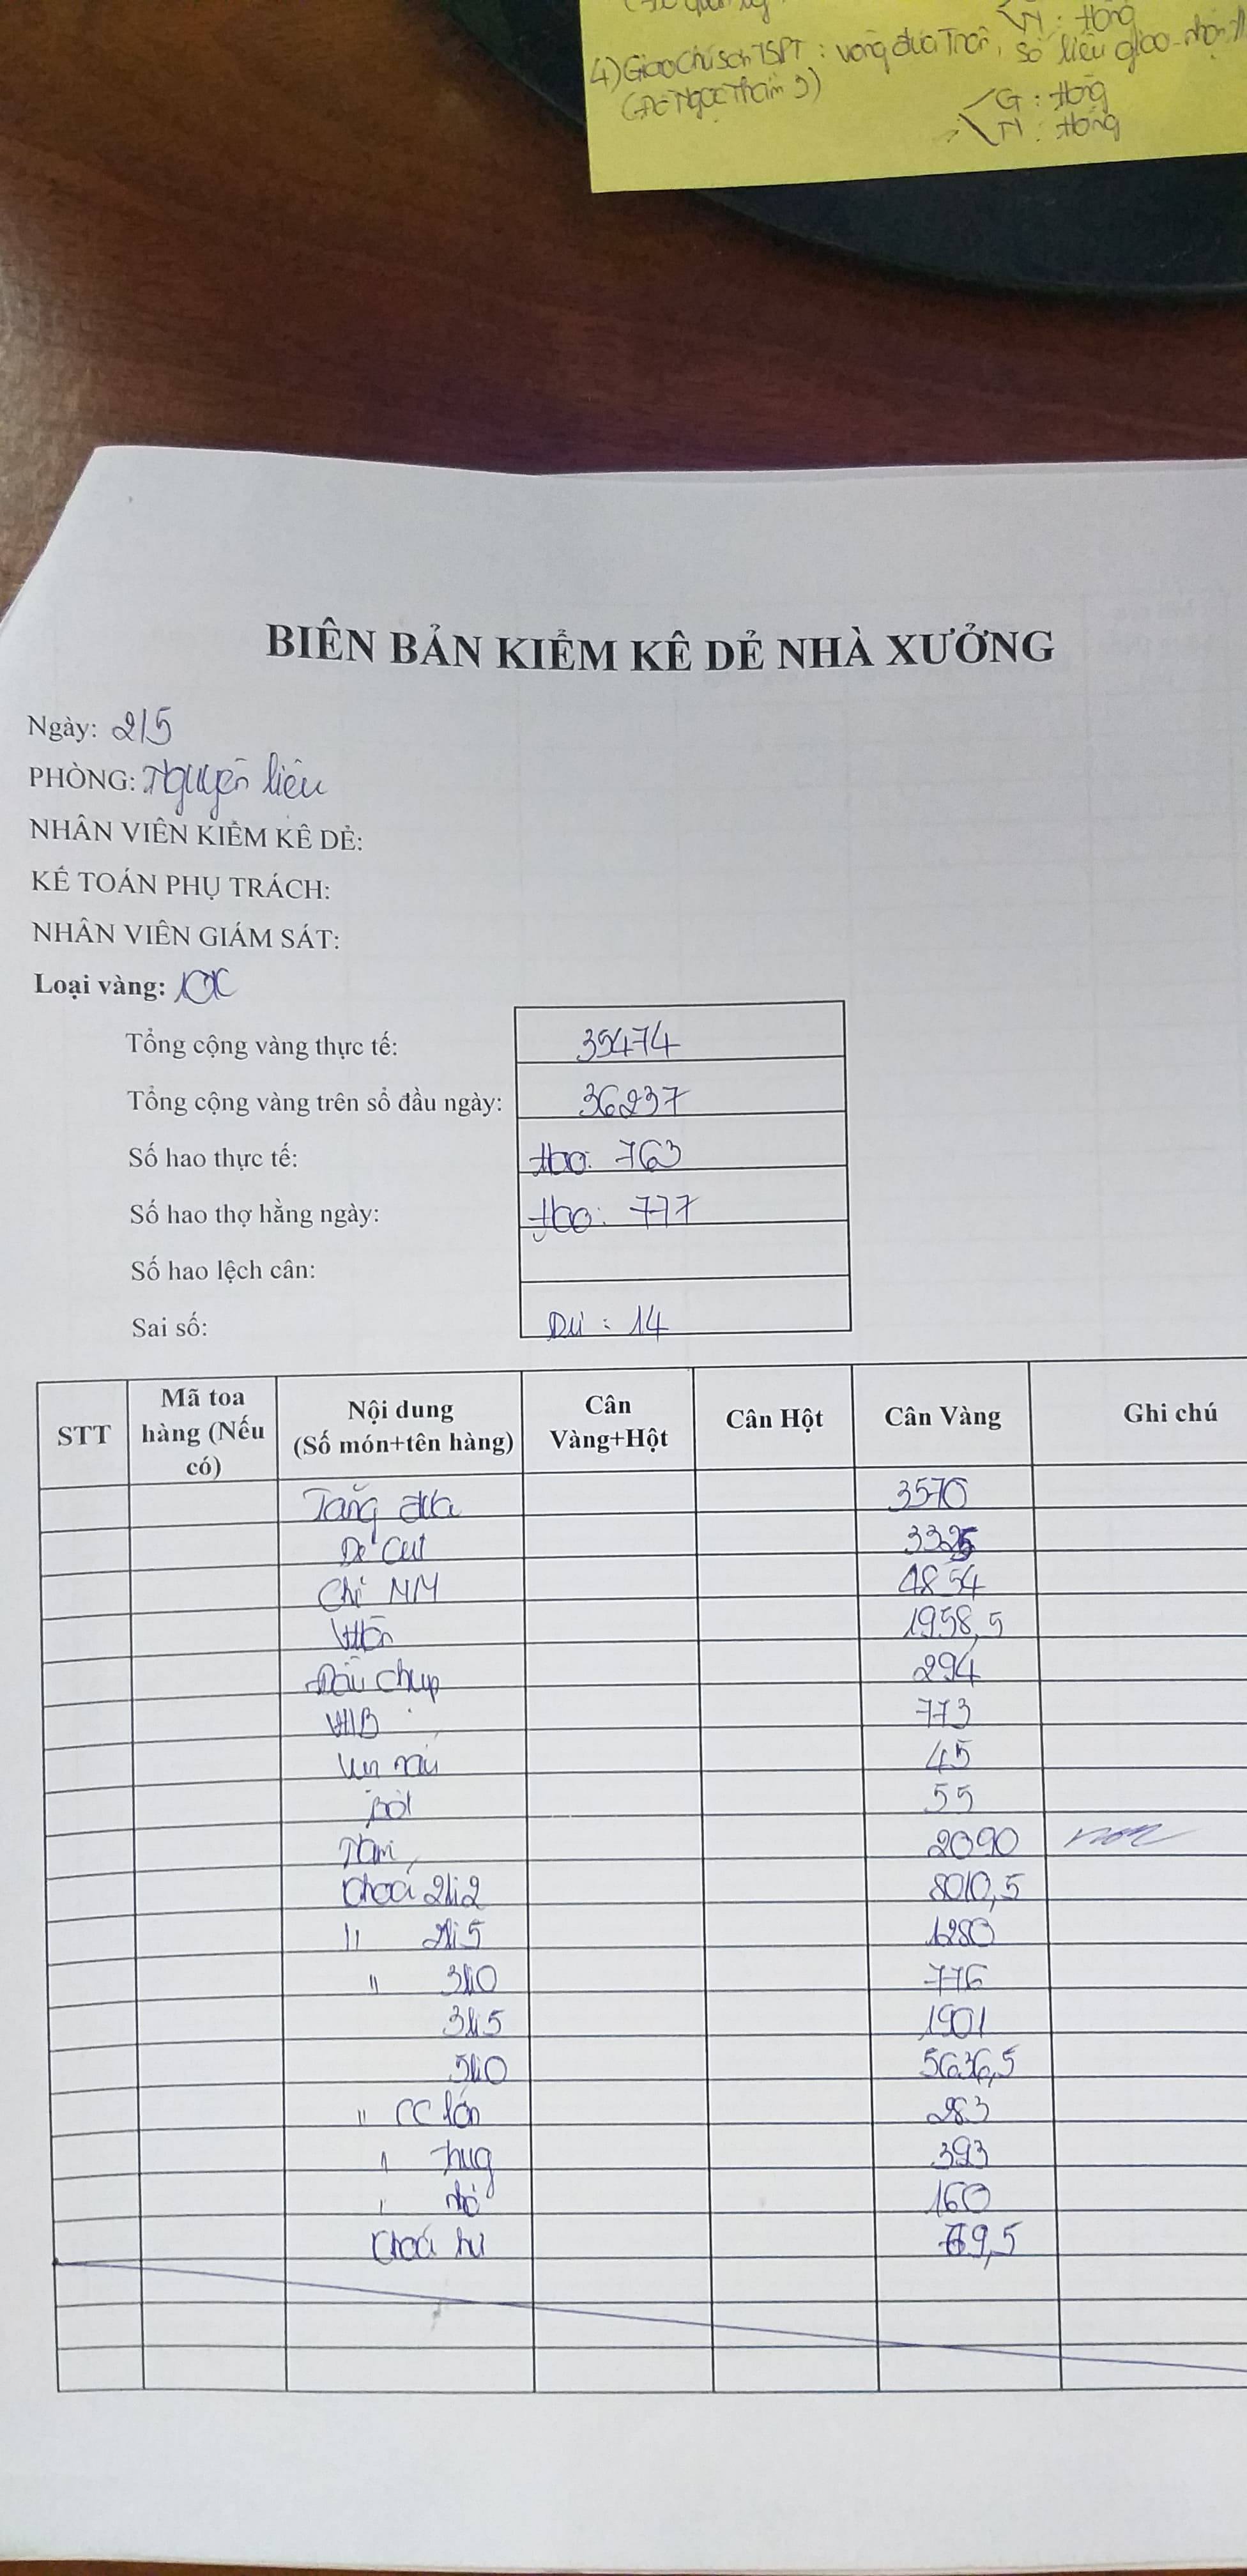 4) Giao chị Sơn TSPT: vòng đúa Trơn, số liệu giao-nhận
(Đc Ngọc Thẩm 9)
G: Hồng
N: Hồng
BIÊN BẢN KIỂM KÊ DẺ NHÀ XƯỞNG
Ngày: 2/5
PHÒNG: Nguyên liệu
NHÂN VIÊN KIỂM KÊ DẺ:
KẾ TOÁN PHỤ TRÁCH:
NHÂN VIÊN GIÁM SÁT:
Loại vàng:
Tổng cộng vàng thực tế: 35474
Tổng cộng vàng trên sổ đầu ngày: 36237
Số hao thực tế: Hao: 763
Số hao thợ hằng ngày: Hao: 777
Số hao lệch cân:
Sai số: Dư: 14
STT Mã toa hàng (Nếu có) Nội dung (Số món+tên hàng) Cân Vàng+Hột Cân Hột Cân Vàng Ghi chú
3570
Dẻ cut 3325
Chỉ MM 4854
1958,5
Đầu chụp 294
773
45
Bột 55
2090
Choá 2li2 8010,5
" 2li5 1280
" 3li0 776
3li5 1901
5li0 5636,5
" CC lớn 283
" trung 393
" nhỏ 160
Choá hư 69,5